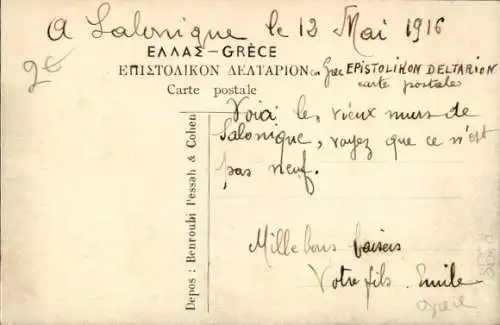 A Salonique le 12 Mai 1916
ΕΛΛΑΣ – GRÈCE
ΕΠΙΣΤΟΛΙΚΟΝ ΔΕΛΤΑΡΙΟΝ en Grec EPISTOLIKON DELTARION
Carte postale carte postale
Voici les vieux murs de
Salonique, voyez que ce n'est
pas neuf.
Mille bons baisers
Votre fils Emile
Grèce
Depos: Benroubi Pessah & Cohen